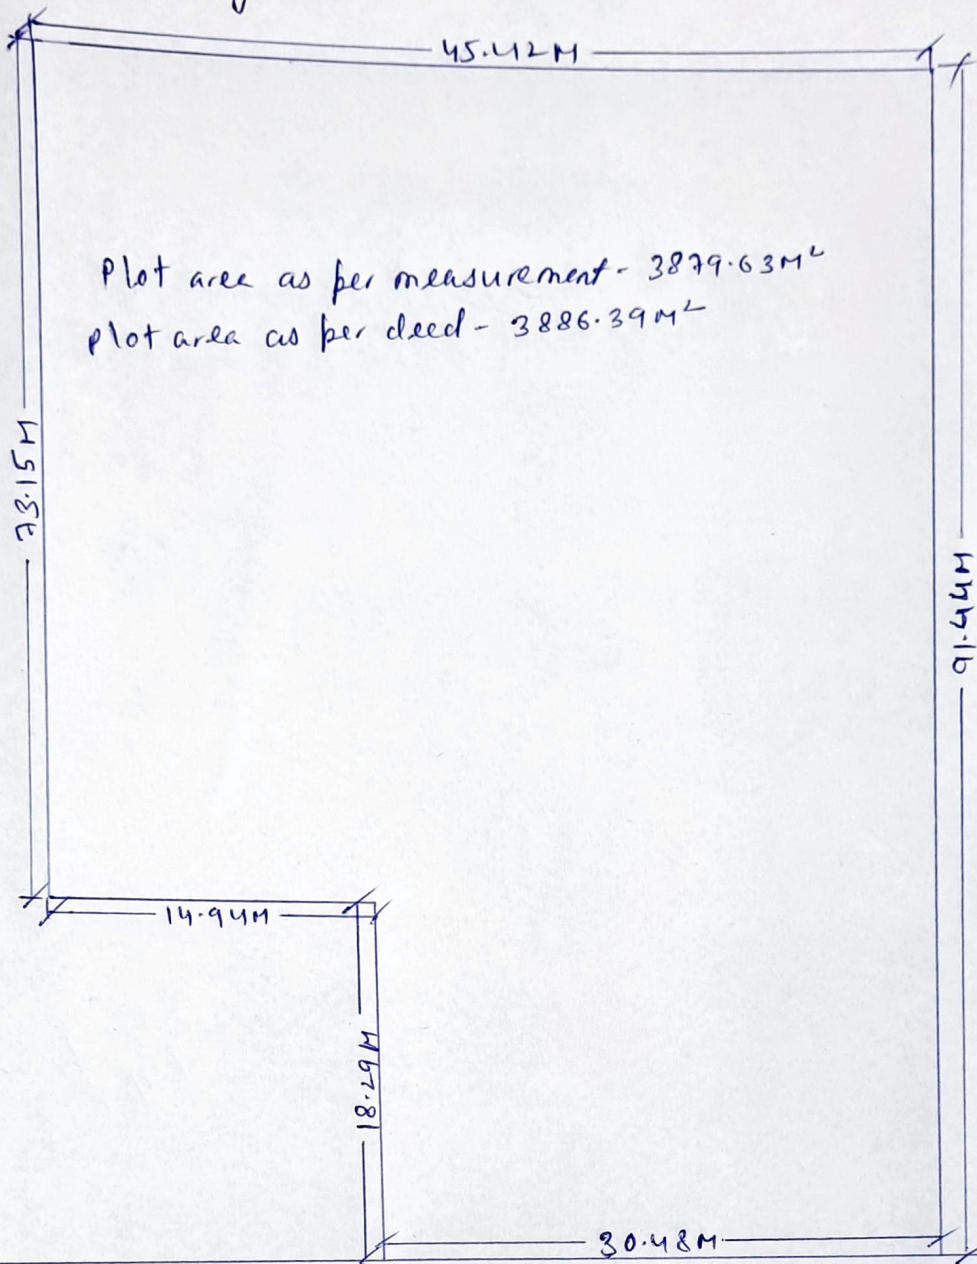 45.42M
Plot area as per measurement - 3879.63M²
plot area as per deed - 3886.39M²
73.15M
91.44M
14.94M
18.29M
30.48M